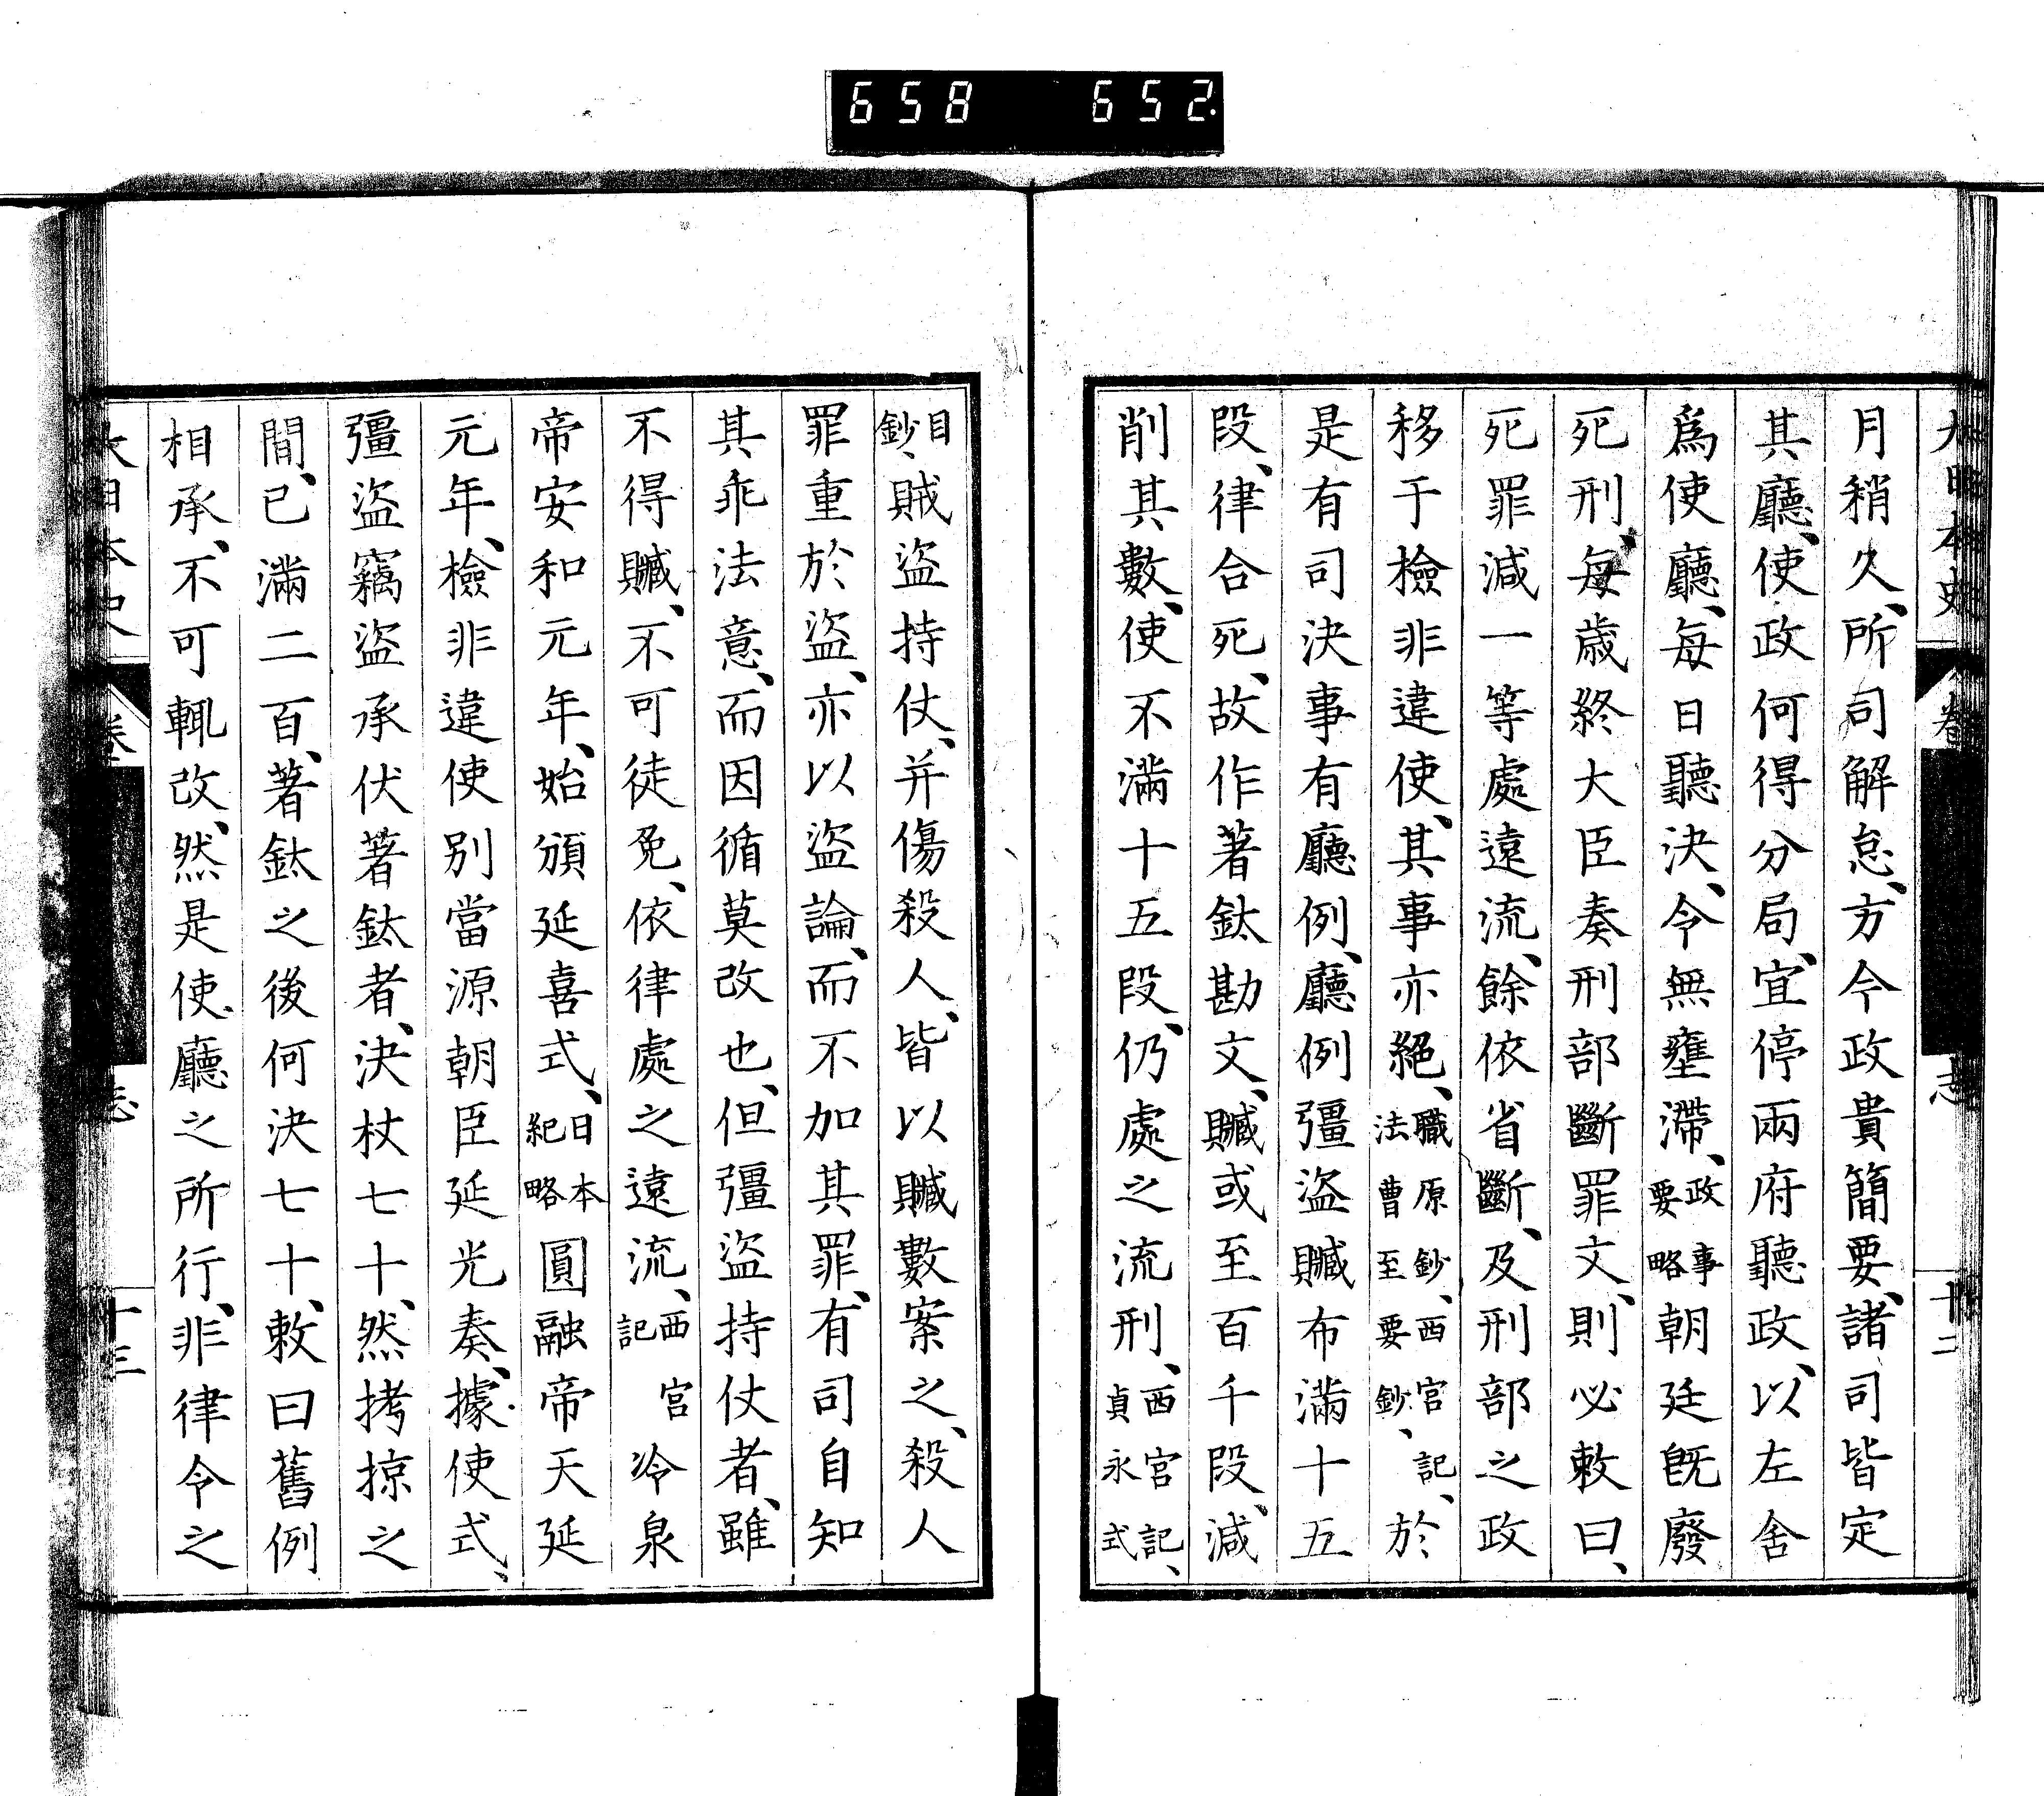 658 652
大日本史 卷 志 十二
月稍久、所司解怠、方今政貴簡要、諸司皆定
其廳、使政何得分局、宜停兩府聽政、以左舍
爲使廳、每日聽決、令無壅滯、政事要略朝廷旣廢
死刑、每歲終大臣奏刑部斷罪文、則必敕曰、
死罪減一等處遠流、餘依省斷、及刑部之政
移于檢非違使、其事亦絕、職原鈔、西宮記、法曹至要鈔、於
是有司決事有廳例、廳例彊盜贓布滿十五
段、律合死、故作著鈦勘文、贓或至百千段、減
削其數、使不滿十五段、仍處之流刑、西宮記、貞永式
目鈔、賊盜持仗、并傷殺人、皆以贓數案之、殺人
罪重於盜、亦以盜論、而不加其罪、有司自知
其乖法意、而因循莫改也、但彊盜持仗者、雖
不得贓、不可徒免、依律處之遠流、西宮記冷泉
帝安和元年、始頒延喜式、日本紀略圓融帝天延
元年、檢非違使別當源朝臣延光奏、據使式、
彊盜竊盜承伏著鈦者、決杖七十、然拷掠之
間、已滿二百、著鈦之後何決七十、敕曰舊例
相承、不可輙改、然是使廳之所行、非律令之
大日本史 卷 志 十三